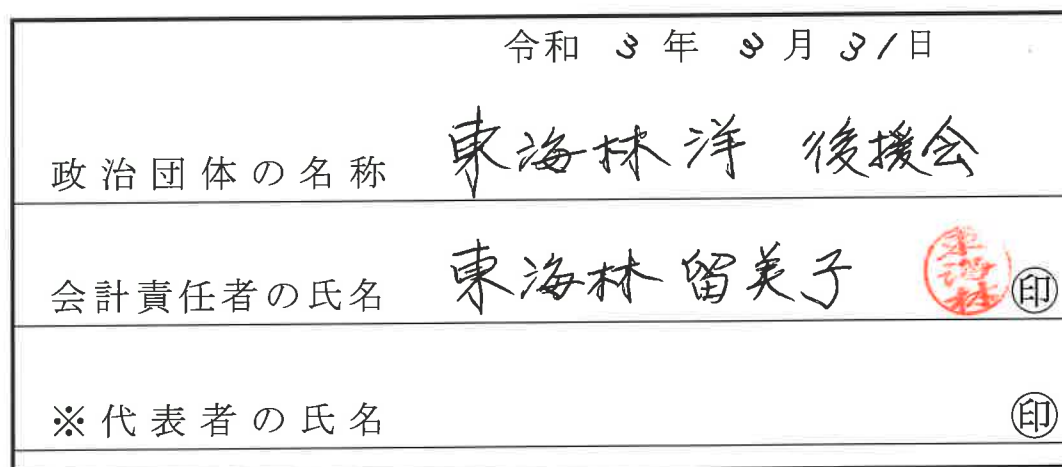 令和 3 年 3 月 31 日
政治団体の名称 東海林洋 後援会
会計責任者の氏名 東海林留美子 東海林 ㊞
※代表者の氏名 ㊞